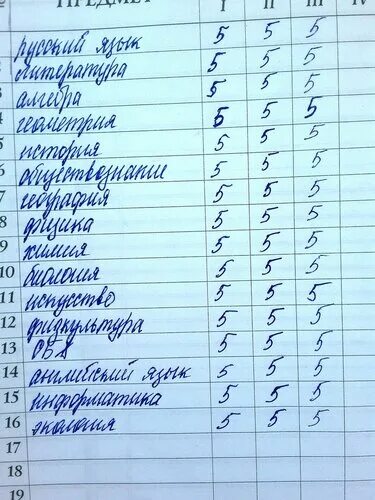 № ПРЕДМЕТ I II III IV
русский язык 5 5 5
2 литература 5 5 5
3 алгебра 5 5 5
4 геометрия 5 5 5
5 история 5 5 5
6 обществознание 5 5 5
7 география 5 5 5
8 физика 5 5 5
9 химия 5 5 5
10 биология 5 5 5
11 искусство 5 5 5
12 физкультура 5 5 5
13 ОБЖ 5 5 5
14 английский язык 5 5 5
15 информатика 5 5 5
16 экология 5 5 5
17
18
19